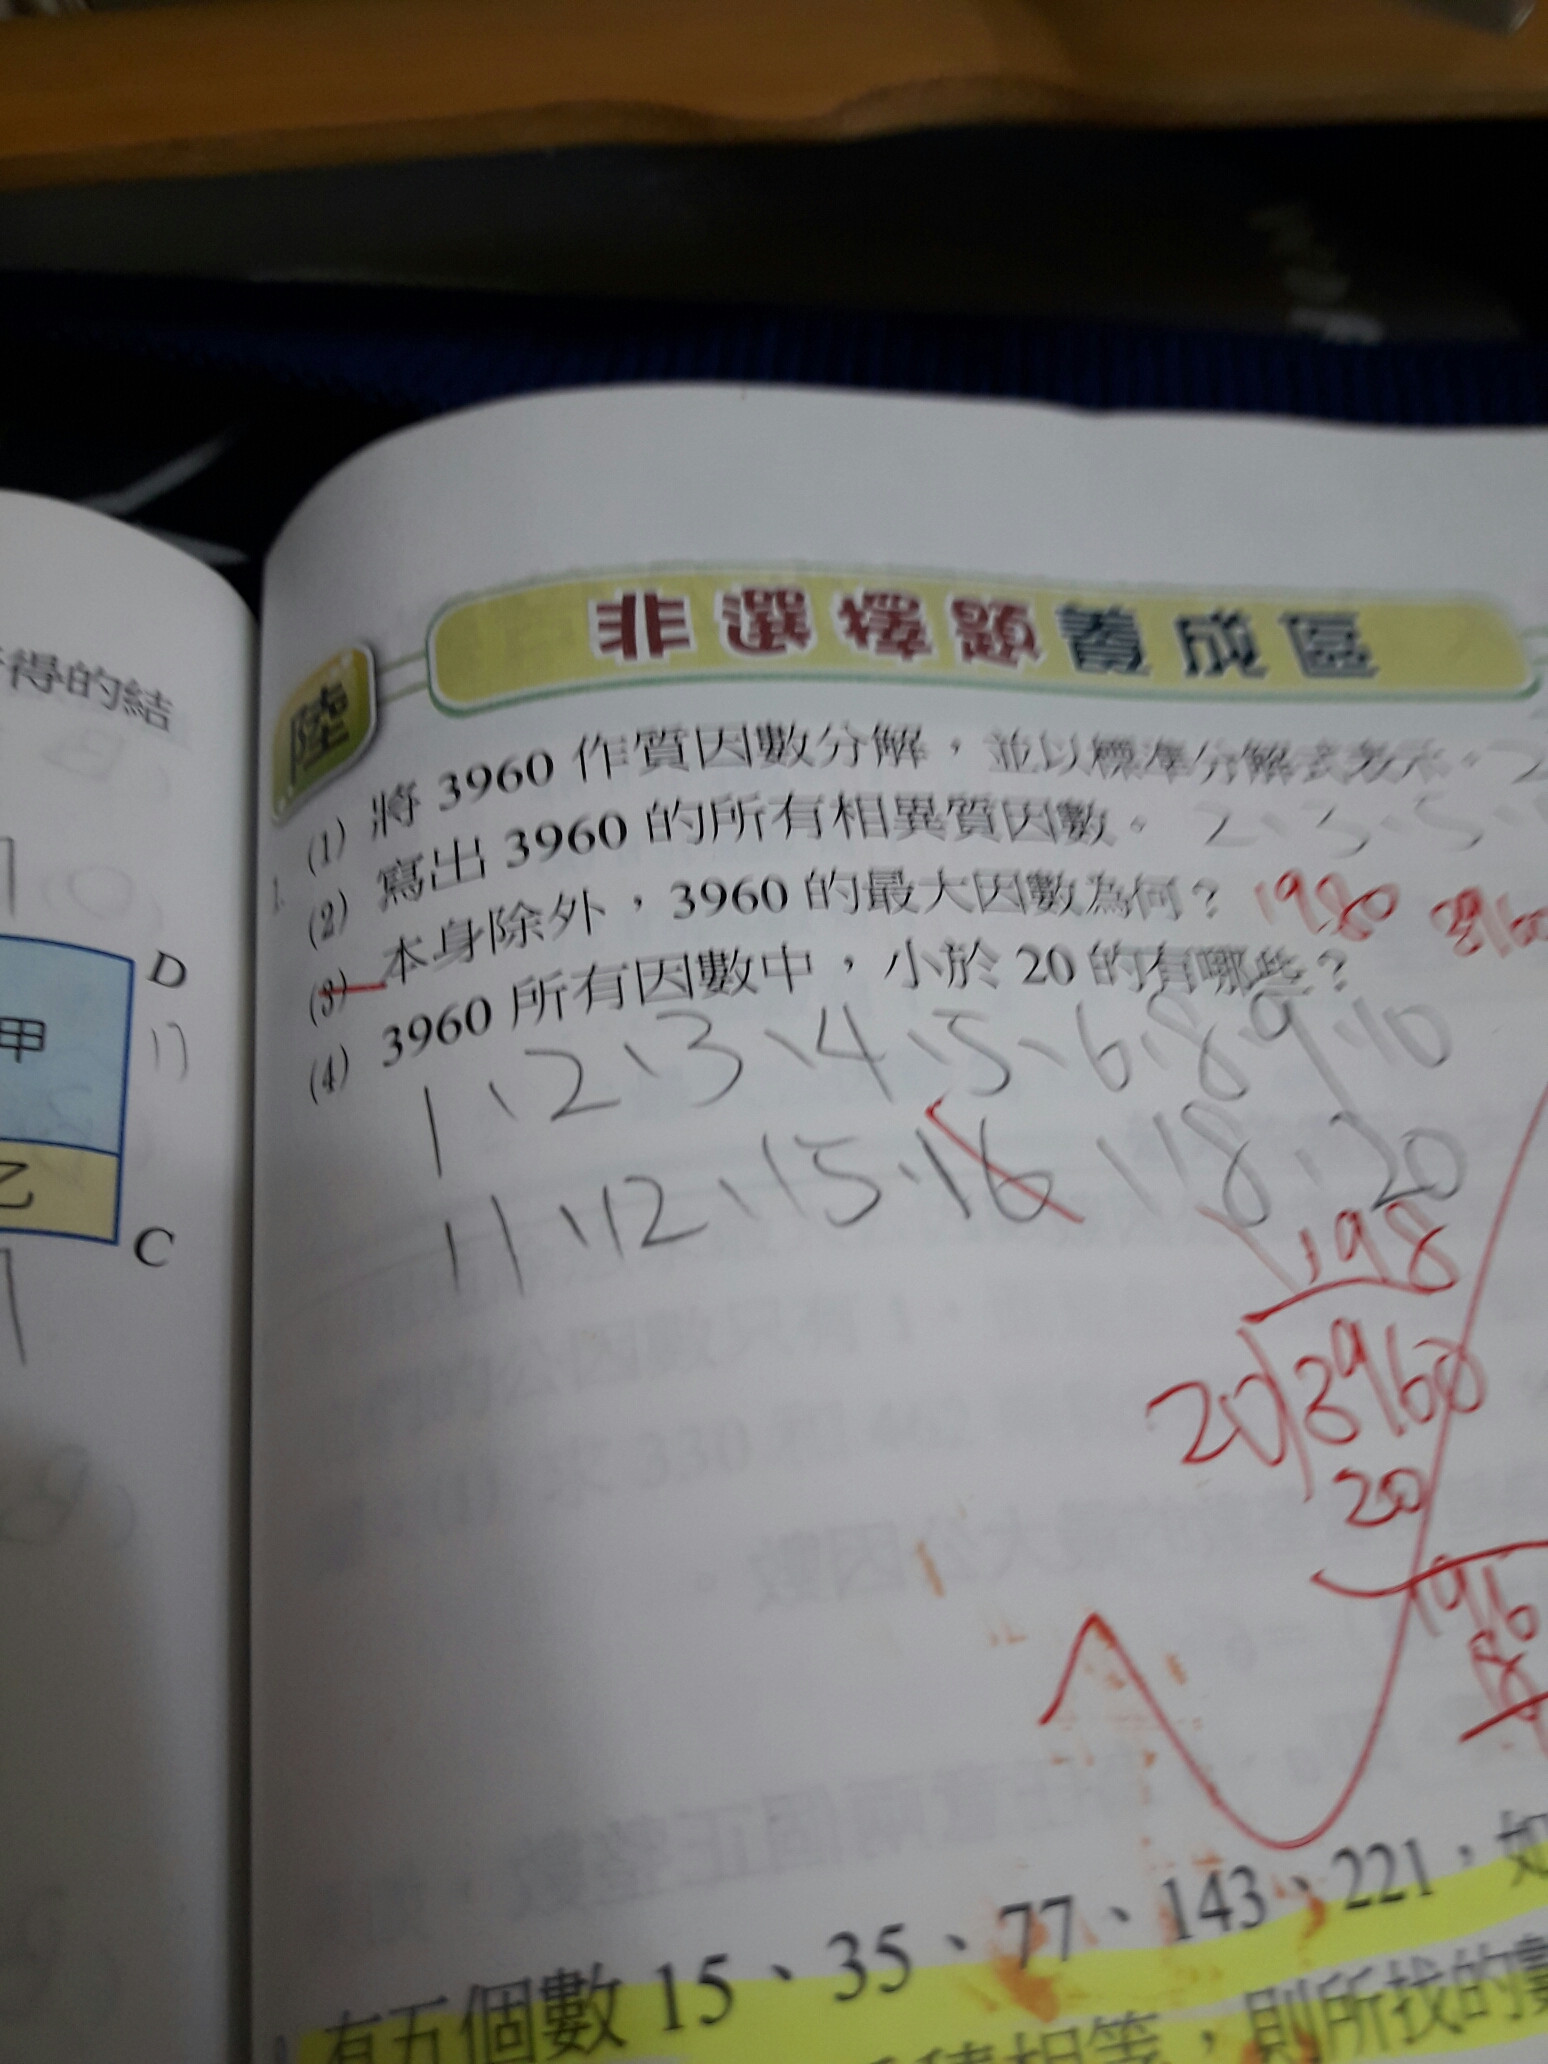 得的結
陸 非選擇題養成區
1. (1) 將 3960 作質因數分解，並以標準分解式表示。2
(2) 寫出 3960 的所有相異質因數。2、3、5、
(3) 本身除外，3960 的最大因數為何？1980 3960
(4) 3960 所有因數中，小於 20 的有哪些？
1、2、3、4、5、6、8、9、10
11、12、15、16、18、20
D
甲
乙
C
198
20 3960
20
196
有五個數 15、35、77、143、221，如
積相等，則所找的數